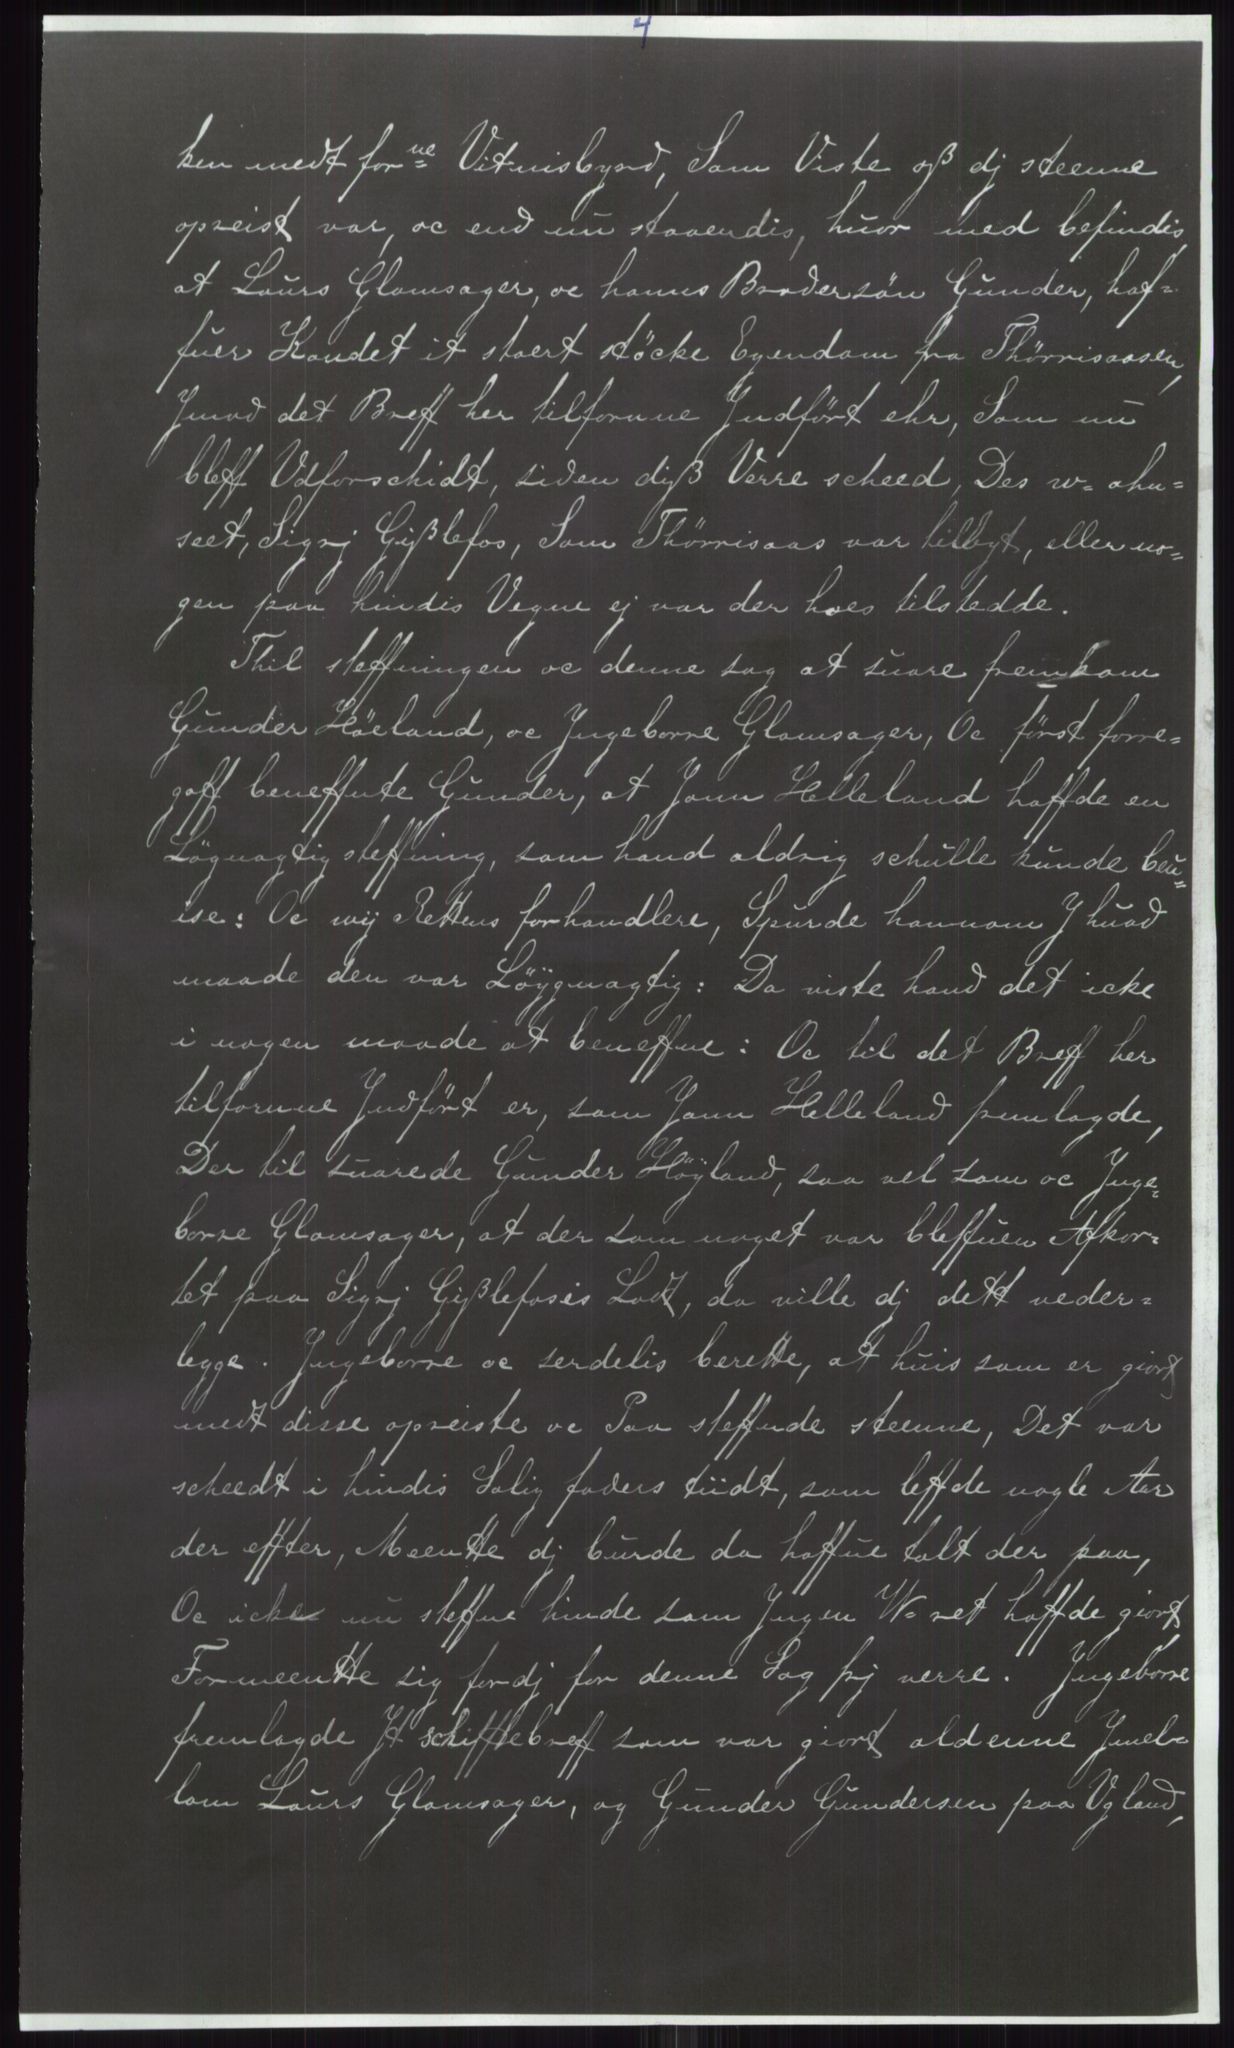 4
ken medt forne Vitnisbyrd, Som Viste oß dj steenne
opreist var, oc end nū staaendis, huor med befindis,
at Laūrs Glamsager, oc hanns Brodersön Gūnder, haf=
fuer Kandet it staert stöcke Egendam fra Thörrisaasen,
Jmod det Breff her tilfornne Jndfört ehr, Som nū
bleff Vdforschidt, siden dyß Verre scheed, Des w= ahn=
seet, Sigrj Gißlefos, Som Thörrisaas var tillögt, eller no=
gen paa hindis Vegne ej var der hoes tilstedde.
Thil steffningen oc denne sag at suare fremkam
Gūnder Höeland, oc Jngeborre Glamsager, Oc först forre=
gaff beneffnte Gūnder, at Jonn Helleland haffde en
Lögnagtig steffning, som hand aldrig schūlle kūnde beu=
ise: Oc wij Rettens forhandlere, Spurde hannom J huad
maade den var Löÿgnagtig: Da viste hand det icke
i nogen maade at beneffne: Oc til det Breff her
tilfornne Jndfört er, som Jonn Helleland fremlagde,
Der til suarede Gūnder Höÿland, saa vel som oc Jnge=
borre Glamsager, at der som noget var bleffuen Afkor=
tet paa Sigrj Gißlefosis Lodt, da ville dj dett veder=
legge. Jngeborre oc serdelis berette, at huis som er giort
medt disse opreiste oc Paa steffnde steenne, Det var
scheedt i hindis Salig faders tiidt, som leffde nogle Aar
der effter, Meentte dj burde da haffue talt der paa,
Oc icke nū steffne hinde som Jngen W= ret haffde giort,
Formeentte sig fordj for denne Sag frj verre. Jngeborre
fremlagde Jt schifftebreff som var giort aldenne Jmel=
lom Laūrs Glamsager, og Gūnder Gūndersen paa Vgland,